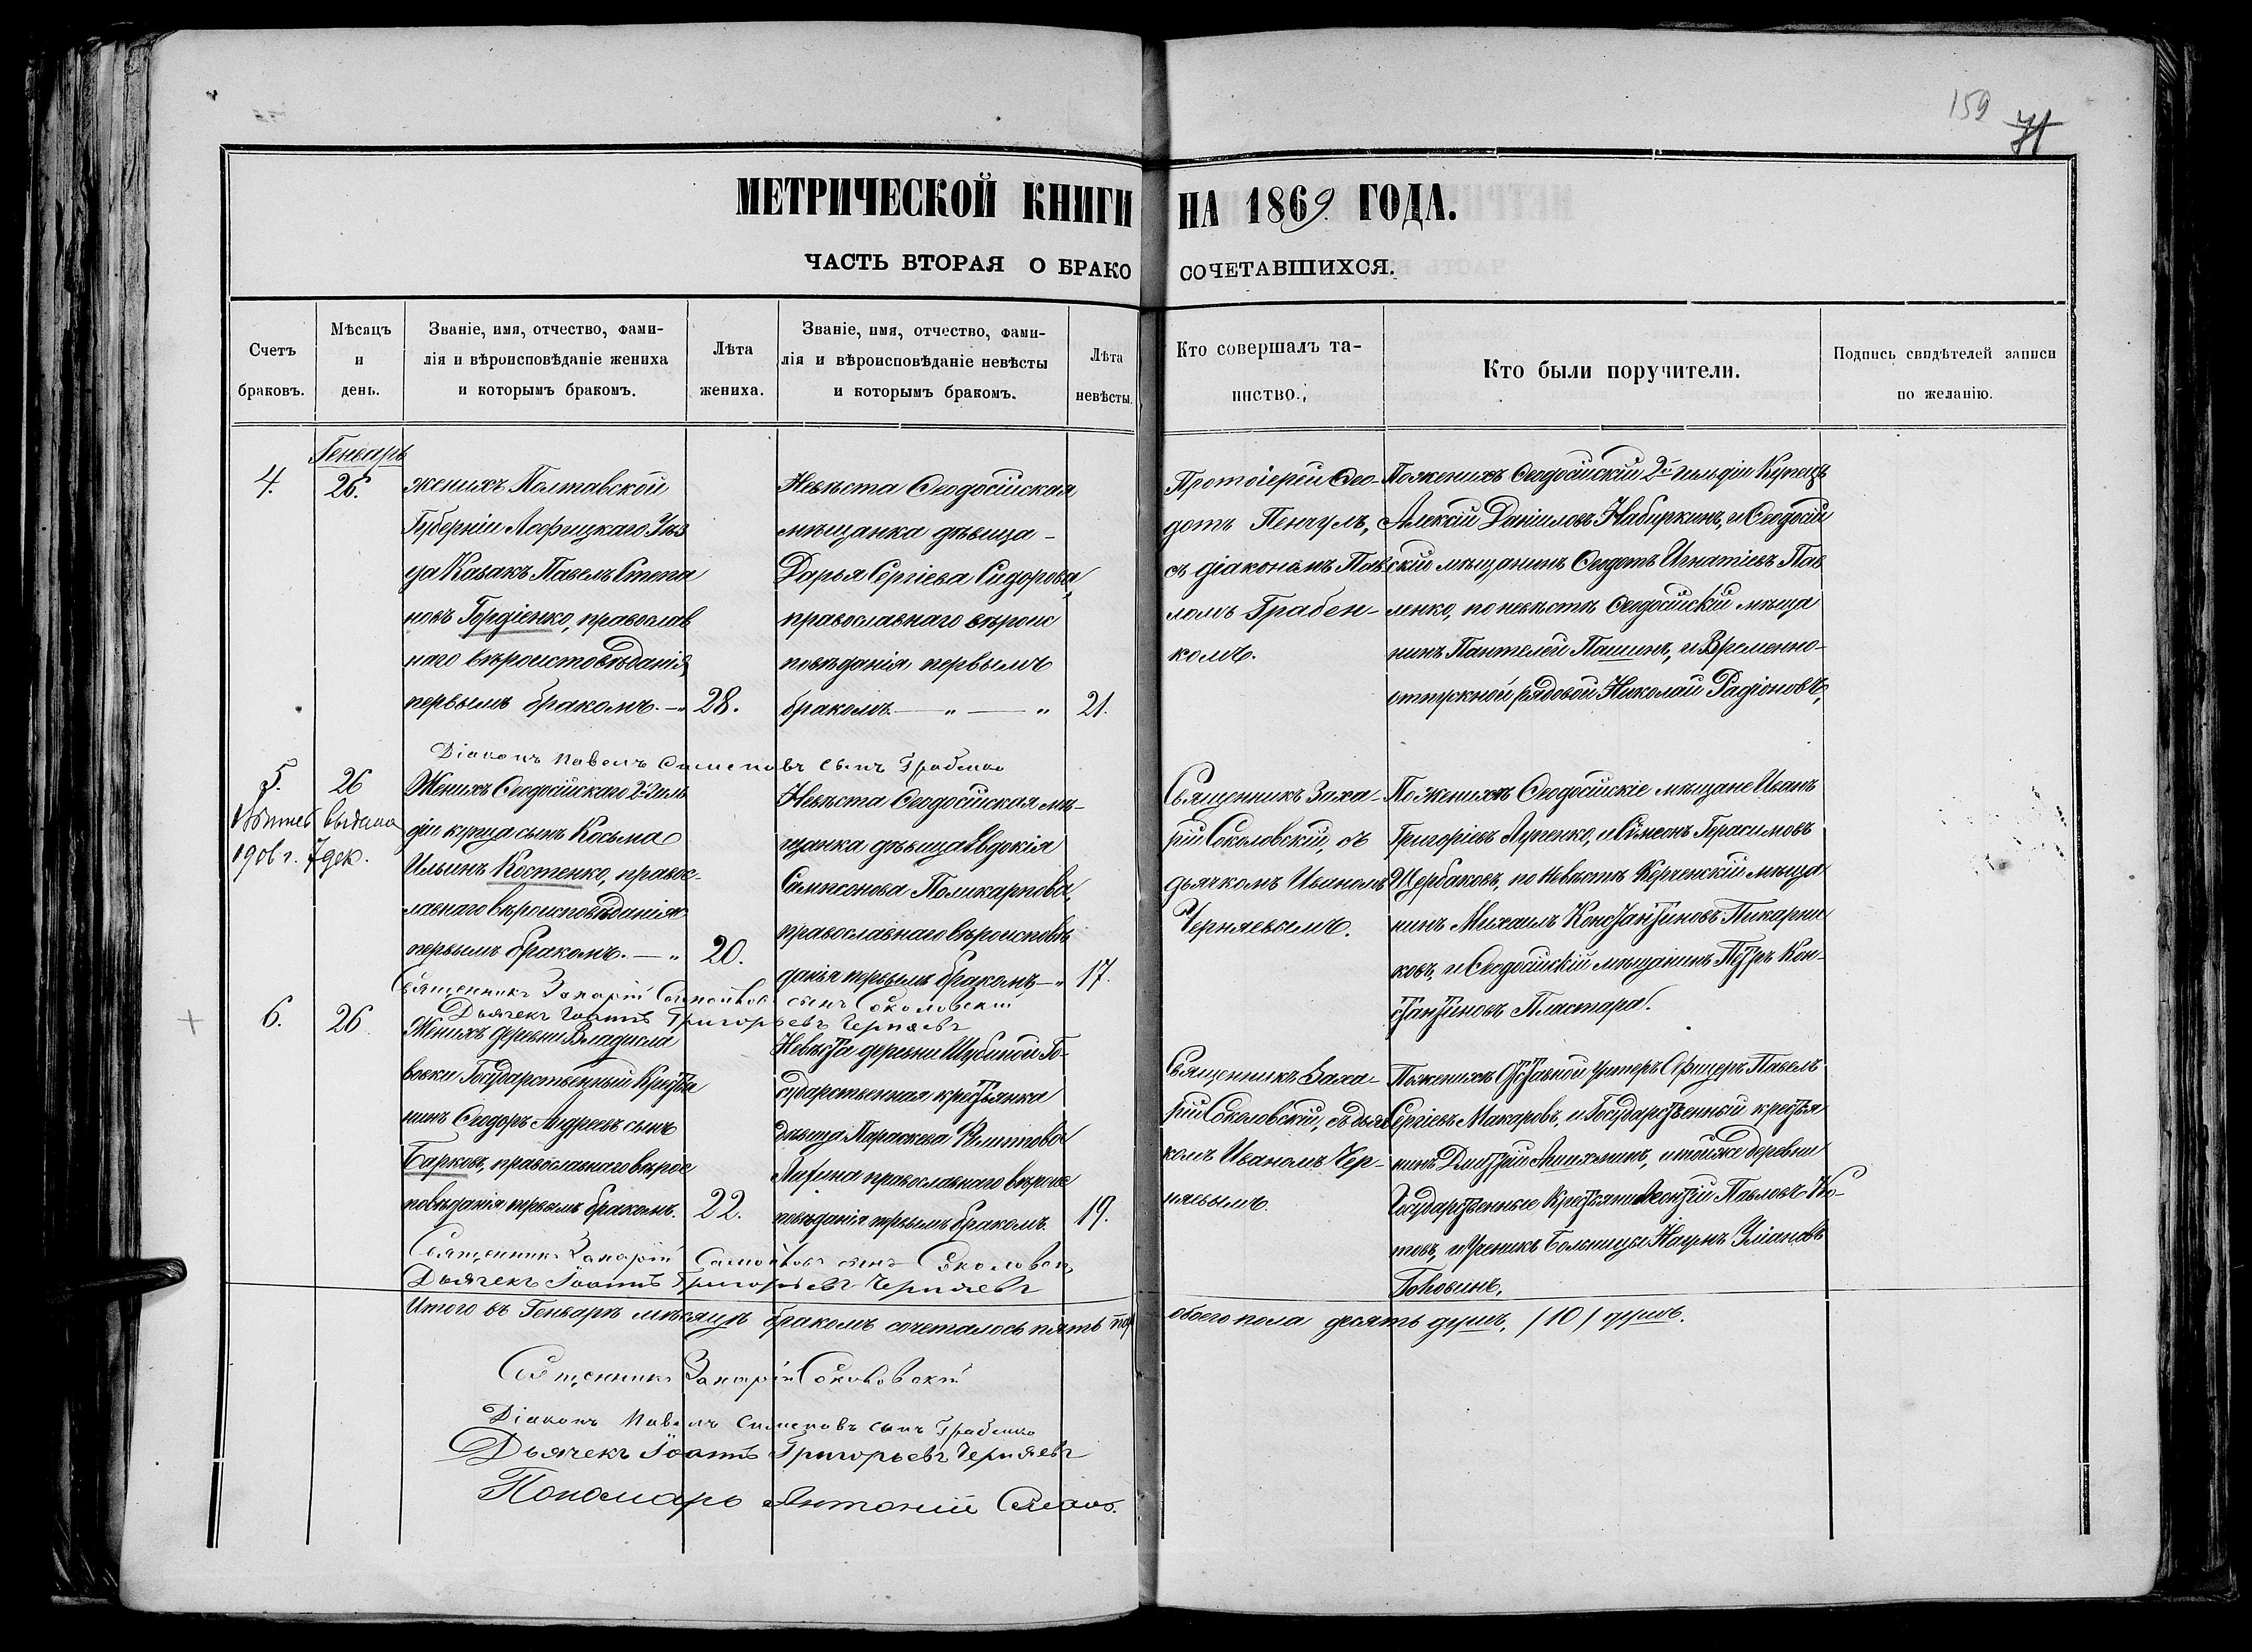 159
71
МЕТРИЧЕСКОЙ КНИГИ НА 1869 ГОДА.
ЧАСТЬ ВТОРАЯ О БРАКО СОЧЕТАВШИХСЯ.
Счетъ
браковъ.
Мѣсяцъ
и
день.
Званіе, имя, отчество, фами-
лія и вѣроисповѣданіе жениха
и которымъ бракомъ.
Лѣта
жениха.
Званіе, имя, отчество, фами-
лія и вѣроисповѣданіе невѣсты
и которымъ бракомъ.
Лѣта
невѣсты.
Кто совершалъ та-
инство.
Кто были поручители.
Подпись свидѣтелей записи
по желанію.
Генварь
4.
26.
женихъ Полтавской
Губерніи Лофицкаго Уѣз
да Казакъ Павелъ Степа
новъ Гордіенко, православ
наго вѣроисповѣданія
первымъ бракомъ. — „
28.
Невѣста Ѳеодосійская
мѣщанка дѣвица -
Дарья Сергіева Сидорова,
православнаго вѣроис
повѣданія первымъ
бракомъ. — „ — „
21.
Протоіерей Ѳео-
дотъ Пенчулъ,
съ діакономъ Пав
ломъ Грабен-
комъ.
По женихѣ Ѳеодосійскій 2й гильдіи Купецъ
Алексій Даніиловъ Набиркинъ, и Ѳеодосій
скій мѣщанинъ Ѳеодотъ Игнатіевъ Пав
ленко, по невѣстѣ Ѳеодосійскій мѣща
нинъ Пантелей Пашинъ, и Временно-
отпускной рядовой Николай Радіоновъ,
Діаконъ Павелъ Симеоновъ сынъ Грабенко
5.
26
выдана
1906 г. 7 дек.
Женихъ Ѳеодосійскаго 2й Гиль
діи купца сынъ Косьма
Ильинъ Костенко, правос-
лавнаго вѣроисповѣданія
первымъ бракомъ. — „
20.
Невѣста Ѳеодосійская мѣ-
щанка дѣвица Евдокія
Сампсонова Поликарпова,
православнаго вѣроисповѣ
данія первымъ бракомъ — „
17.
Священникъ Заха-
рій Соколовскій, съ
дьячкомъ Иваномъ
Черняевымъ.
По женихѣ Ѳеодосійскіе мѣщане Иванъ
Григоріевъ Луценко, и Симеонъ Герасимовъ
Щербаковъ, по невѣстѣ Керченскій мѣща
нинъ Михаилъ Константиновъ Пикарни
ковъ, и Ѳеодосійскій мѣщанинъ Петръ Кон-
стантиновъ Пластара.
Священникъ Захарій Самойловъ сынъ Соколовскій
Дьячекъ Іоаннъ Григорьевъ Черняевъ
6.
26
Женихъ деревни Владисла
вовки Государственный Крестья
нинъ Ѳеодоръ Андреевъ сынъ
Барковъ, православнаго вѣроис
повѣданія первымъ бракомъ.
22.
Невѣста деревни Шубиной Го-
сударственная крестьянка
дѣвица Параскева Филитова
Ларина православнаго вѣроис
повѣданія первымъ бракомъ.
19.
Священникъ Заха-
рій Соколовскій, съ дьяч
комъ Иваномъ Чер-
няевымъ.
По женихѣ Отставной унтеръ Офицеръ Павелъ
Сергіевъ Макаровъ, и Государственный крестья
нинъ Дмитрій, и той же деревни
Государственные Крестьяне Леонтій Павловъ
товъ, и Ученикъ Больницы Наумъ
Священникъ Захарій Самойловъ сынъ Соколовск
Дьячекъ Іоаннъ Григорьевъ Черняевъ
Итого въ Генварѣ мѣсяцѣ бракомъ сочеталось пять паръ обоего пола десять душъ, /10/ душъ.
Священникъ Захарій Соколовскій
Діаконъ Павелъ Симеоновъ сынъ Грабенко
Дьячекъ Іоаннъ Григорьевъ Черняевъ
Пономарь Антоній